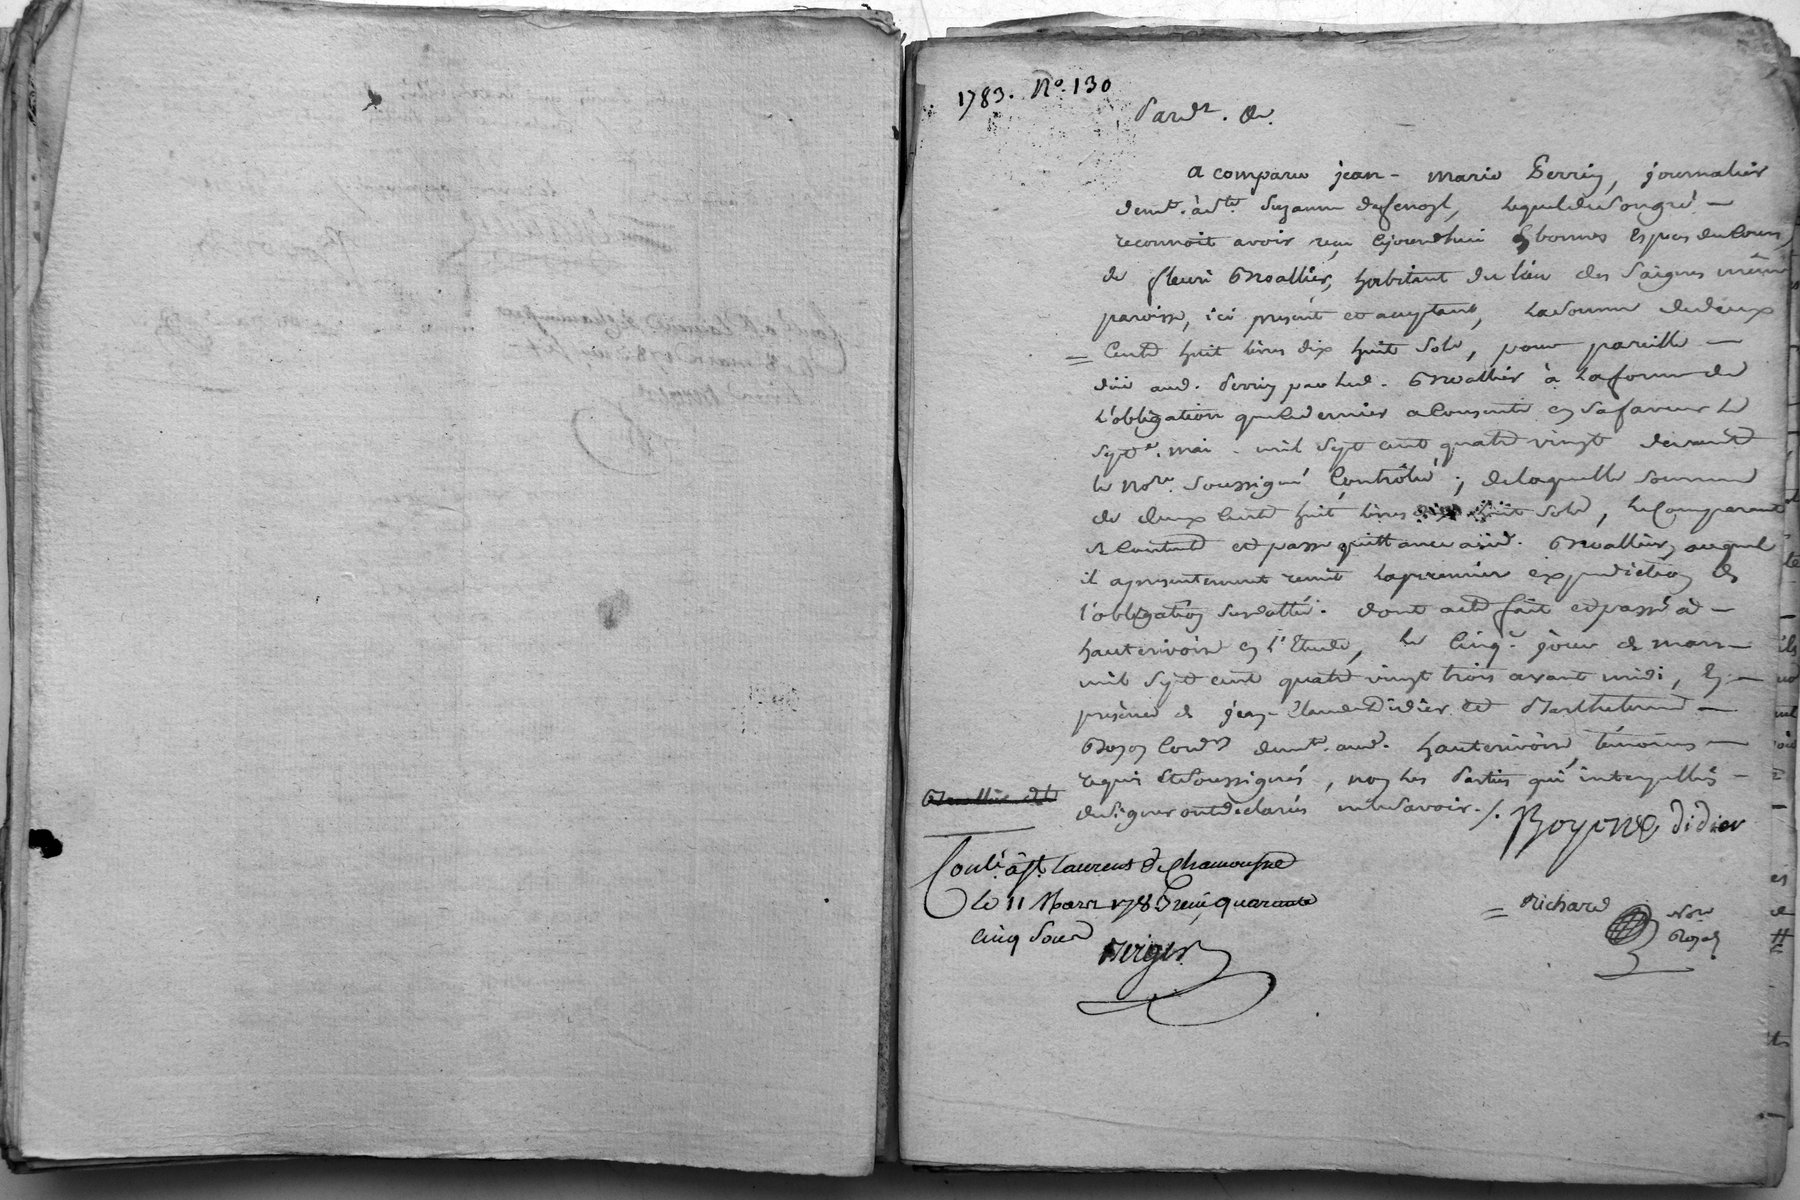 1783. No. 130
Pard.t &c.
a comparu jean - marie Perrin, journalier
demt. à ste. Suzanne lequel de son gré -
reconnoit avoir reçu cejourdhui en bonnes espèces du cours,
de fleuri habitant du lieu des Saignes même
paroisse, ici présent et acceptant, la somme de deux
= cents huit livres dix huit sols, pour pareille -
düe aud. Perrin par led. à la forme de
l'obligation que ce dernier a consentie en sa faveur le
sept.e mai - mil sept cent quatre vingt devant
le nore. soussigné Contrôlée ; de laquelle somme
de deux cents huit livres dix huit sols, le Comparant
se contente et passe quittance aud. auquel
il a presentement remit la premiere expedition de
l'obligation susdattée. dont acte fait et passé à -
hauterivoire en l'Etude, le cinq.e jour de mars -
mil sept cent quatre vingt trois avant midi, En -
présence de jean-Claude Didier et Barthelemi -
demts. aud. hauterivoire, témoins -
requis et soussignés, non les Parties qui interpellées -
de signer ont déclarés ne le savoir ./.
Didier
Contlé. à St. Laurent de Chamousset
le 11 Mars 1783 reçu quarante
cinq sous
Verger
= Richard Nore
Royal